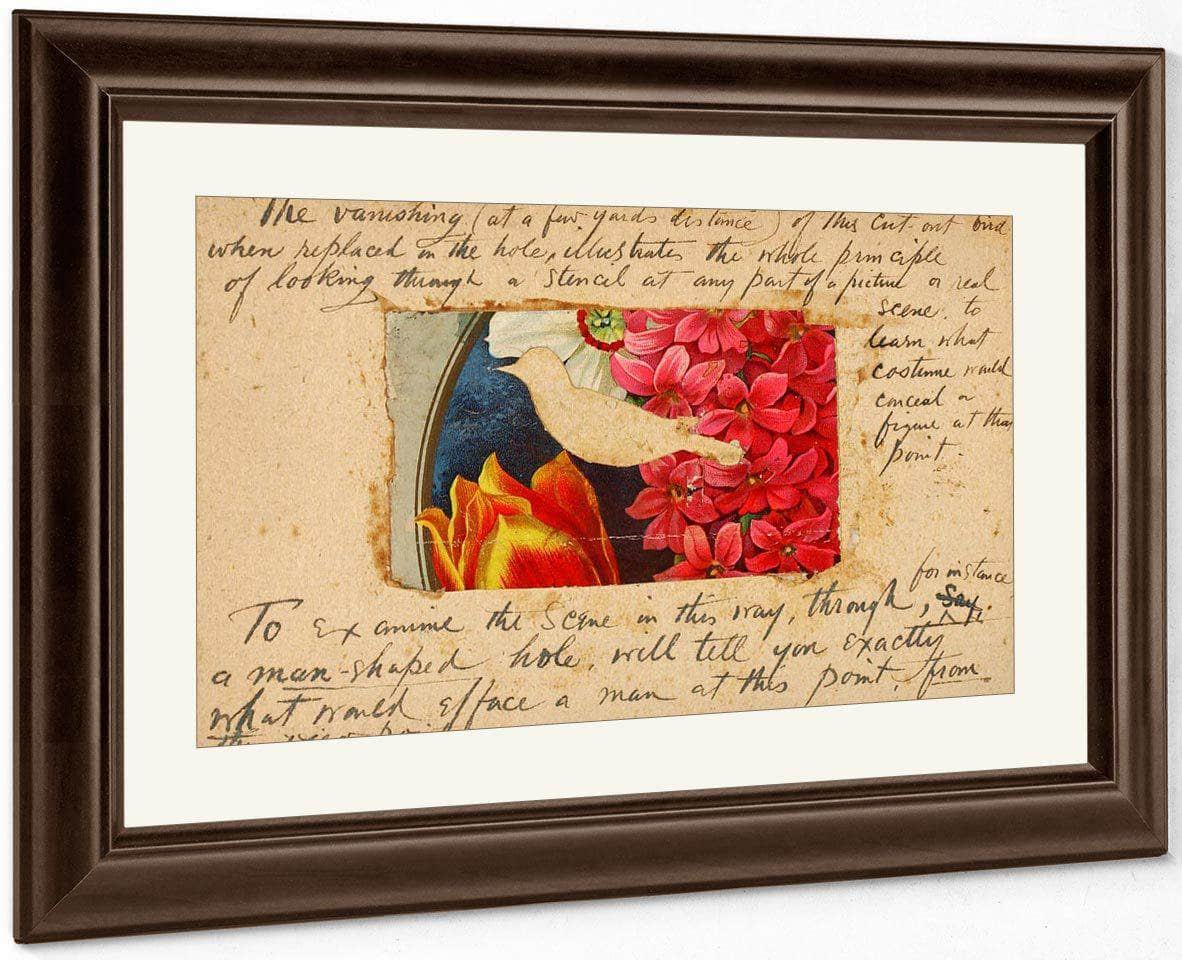 The vanishing (at a few yards distance) of this cut-out bird
when replaced in the hole, illustrates the whole principle
of looking through a stencil at any part of a picture or real
scene, to
learn what
costume would
conceal a
figure at that
point.
for instance
To examine the scene in this way, through, Say,
a man-shaped hole, will tell you exactly
what would efface a man at this point, from
the view